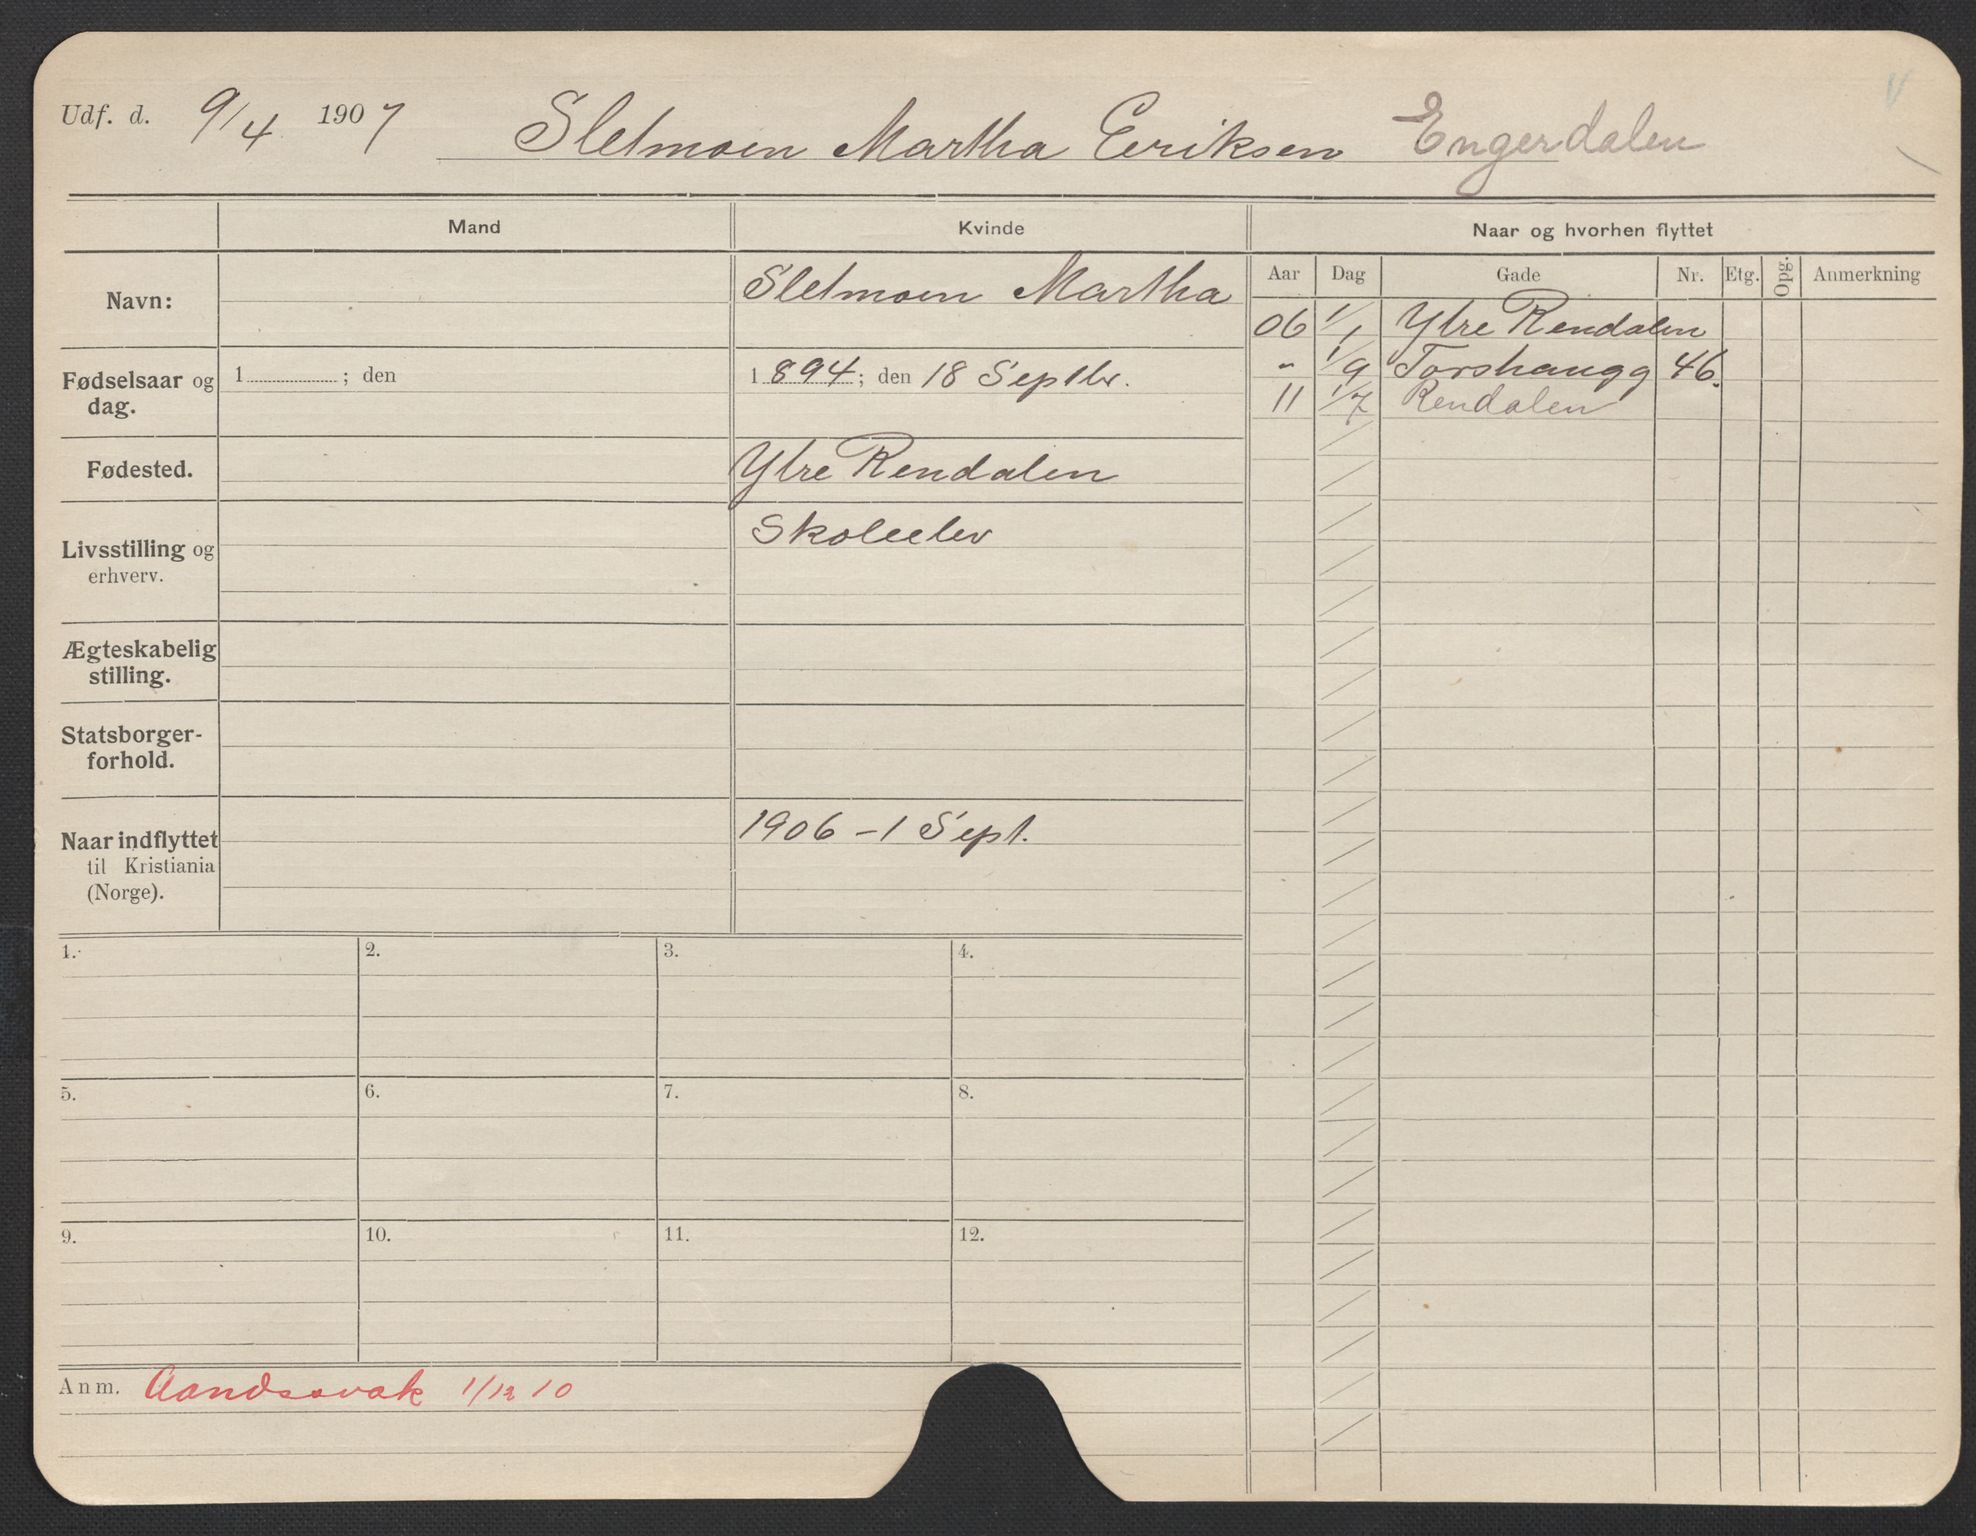 Udf. d. 9/4 1907 Sletmoen Martha Eriksen Engerdalen
Mand Kvinde Naar og hvorhen flyttet
Aar Dag Gade Nr. Etg. Opg. Anmerkning
Navn: Sletmoen Martha
06 1/1 Ytre Rendalen
Fødselsaar og dag. 1 ; den 1894; den 18 Septbr.
" 1/9 Torshaugg 46.
11 1/7 Rendalen
Fødested. Ytre Rendalen
Livsstilling og erhverv. Skoleelev
Ægteskabelig stilling.
Statsborger-
forhold.
Naar indflyttet 1906 - 1 Sept.
til Kristiania
(Norge).
1. 2. 3. 4.
5. 6. 7. 8.
9. 10. 11. 12.
Anm. Aandssvak 1/12 10